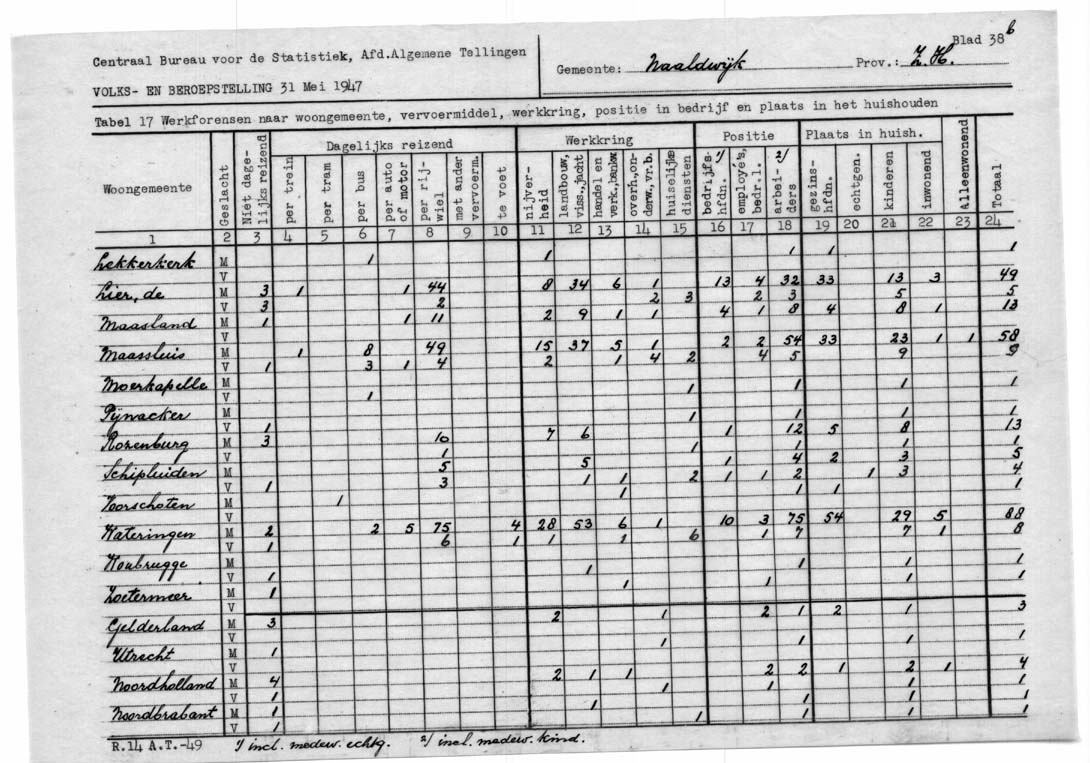 Blad 38b
Centraal Bureau voor de Statistiek, Afd.Algemene Tellingen
Gemeente: Naaldwijk Prov.: Z.H.
VOLKS- EN BEROEPSTELLING 31 Mei 1947
Tabel 17 Werkforensen naar woongemeente, vervoermiddel, werkkring, positie in bedrijf en plaats in het huishouden
Woongemeente
Geslacht
Niet dage-
lijks reizend
Dagelijks reizend
per trein
per tram
per bus
per auto
of motor
per rij-
wiel
met ander
vervoerm.
te voet
Werkkring
nijver-
heid
landbouw,
viss.,jacht
handel en
verk.,bankw.
overh.,on-
derw.,vr.b.
huiselijke
diensten
Positie
bedrijfs-
hfdn. 1/
employé's,
bedr.l.
arbei-
ders 2/
Plaats in huish.
gezins-
hfdn.
echtgen.
kinderen
inwonend
Alleenwonend
Totaal
1 2 3 4 5 6 7 8 9 10 11 12 13 14 15 16 17 18 19 20 21 22 23 24
Lekkerkerk M 1 1 1 1 1
V
Lier, de M 3 1 1 44 8 34 6 1 13 4 32 33 13 3 49
V 3 2 2 3 2 3 5 5
Maasland M 1 1 11 2 9 1 1 4 1 8 4 8 1 13
V
Maassluis M 1 8 49 15 37 5 1 2 2 54 33 23 1 1 58
V 1 3 1 4 2 1 4 2 4 5 9 9
Moerkapelle M
V 1 1 1 1 1
Pijnacker M
V 1 1 1 1 1
Rozenburg M 3 10 7 6 1 12 5 8 13
V 1 1 1 1 1
Schipluiden M 5 5 1 4 2 3 5
V 1 3 1 1 2 1 1 2 1 3 4
Voorschoten M 1 1 1 1 1
V
Wateringen M 2 2 5 75 4 28 53 6 1 10 3 75 54 29 5 88
V 1 6 1 1 1 6 1 7 7 1 8
Woubrugge M
V 1 1 1 1 1
Zoetermeer M 1 1 1 1 1
V
Gelderland M 3 2 1 2 1 2 1 3
V
Utrecht M 1 1 1 1 1
V
Noordholland M 4 2 1 1 2 2 1 2 1 4
V 1 1 1 1 1
Noordbrabant M 1 1 1 1 1
V 1 1 1 1 1
R.14 A.T.-49 1/ incl. medew. echtg. 2/ incl. medew. kind.